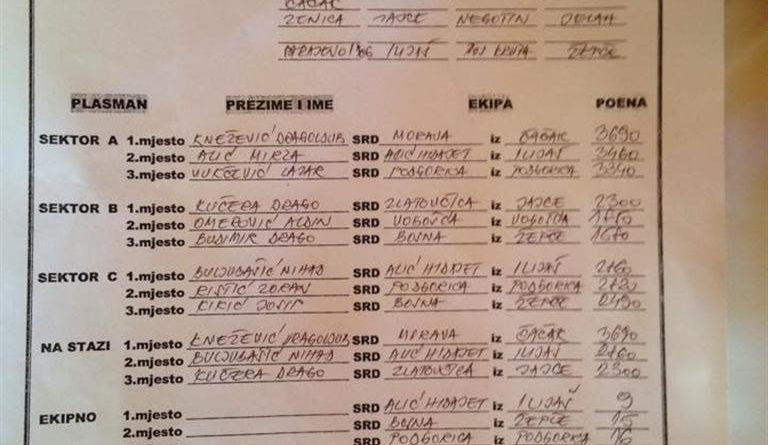 ČAČAK
ZENICA JAJCE NEGOTIN
ILIJAŠ ŽEPČE
PLASMAN PREZIME I IME EKIPA POENA
SEKTOR A 1.mjesto KNEŽEVIĆ DRAGOLJUB SRD MORAVA iz ČAČAK 3690
2.mjesto ALIĆ MIRZA SRD ALIĆ HIDAJET iz ILIJAŠ 3460
3.mjesto VUKČEVIĆ LAZAR SRD PODGORICA iz PODGORICA 3340
SEKTOR B 1.mjesto KUČERA DRAGO SRD ZLATOVČICA iz JAJCE 2300
2.mjesto OMEROVIĆ ALDIN SRD VOGOŠĆA iz VOGOŠĆA
3.mjesto BUDIMIR DRAGO SRD BOSNA iz ŽEPČE
SEKTOR C 1.mjesto BULJUBAŠIĆ NIHAD SRD ALIĆ HIDAJET iz ILIJAŠ
2.mjesto RISTIĆ ZORAN SRD PODGORICA iz PODGORICA
3.mjesto JOSIP SRD BOSNA iz ŽEPČE
NA STAZI 1.mjesto KNEŽEVIĆ DRAGOLJUB SRD MORAVA iz ČAČAK 3690
2.mjesto BULJUBAŠIĆ NIHAD SRD ALIĆ HIDAJET iz ILIJAŠ
3.mjesto KUČERA DRAGO SRD ZLATOVČICA iz JAJCE 2300
EKIPNO 1.mjesto SRD ALIĆ HIDAJET iz ILIJAŠ 9
2.mjesto SRD BOSNA iz ŽEPČE 15
SRD PODGORICA iz PODGORICA 16